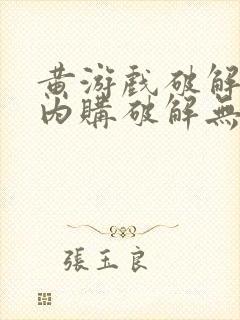 黄游戏破解
内購破解無
張玉良